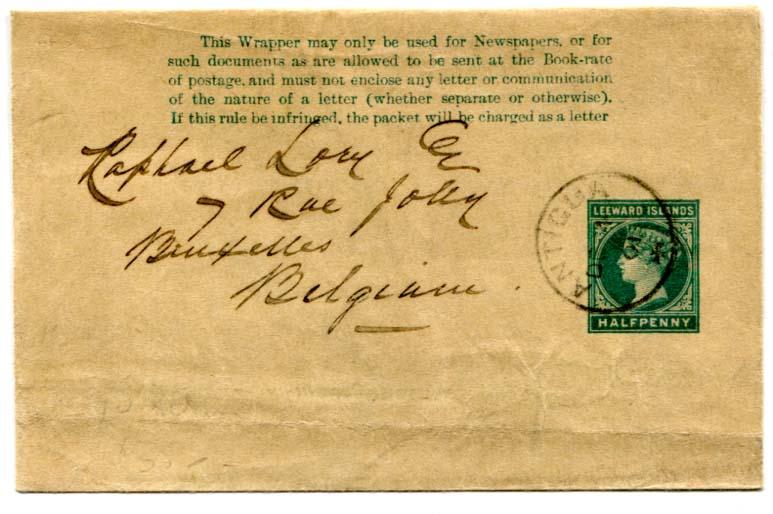 This Wrapper may only be used for Newspapers, or for
such documents as are allowed to be sent at the Book-rate
of postage, and must not enclose any letter or communication
of the nature of a letter (whether separate or otherwise).
If this rule be infringed, the packet will be charged as a letter
Raphael Lory
7 Rue Jolly
Bruxelles
Belgium.
ANTIGUA
LEEWARD ISLANDS
HALFPENNY